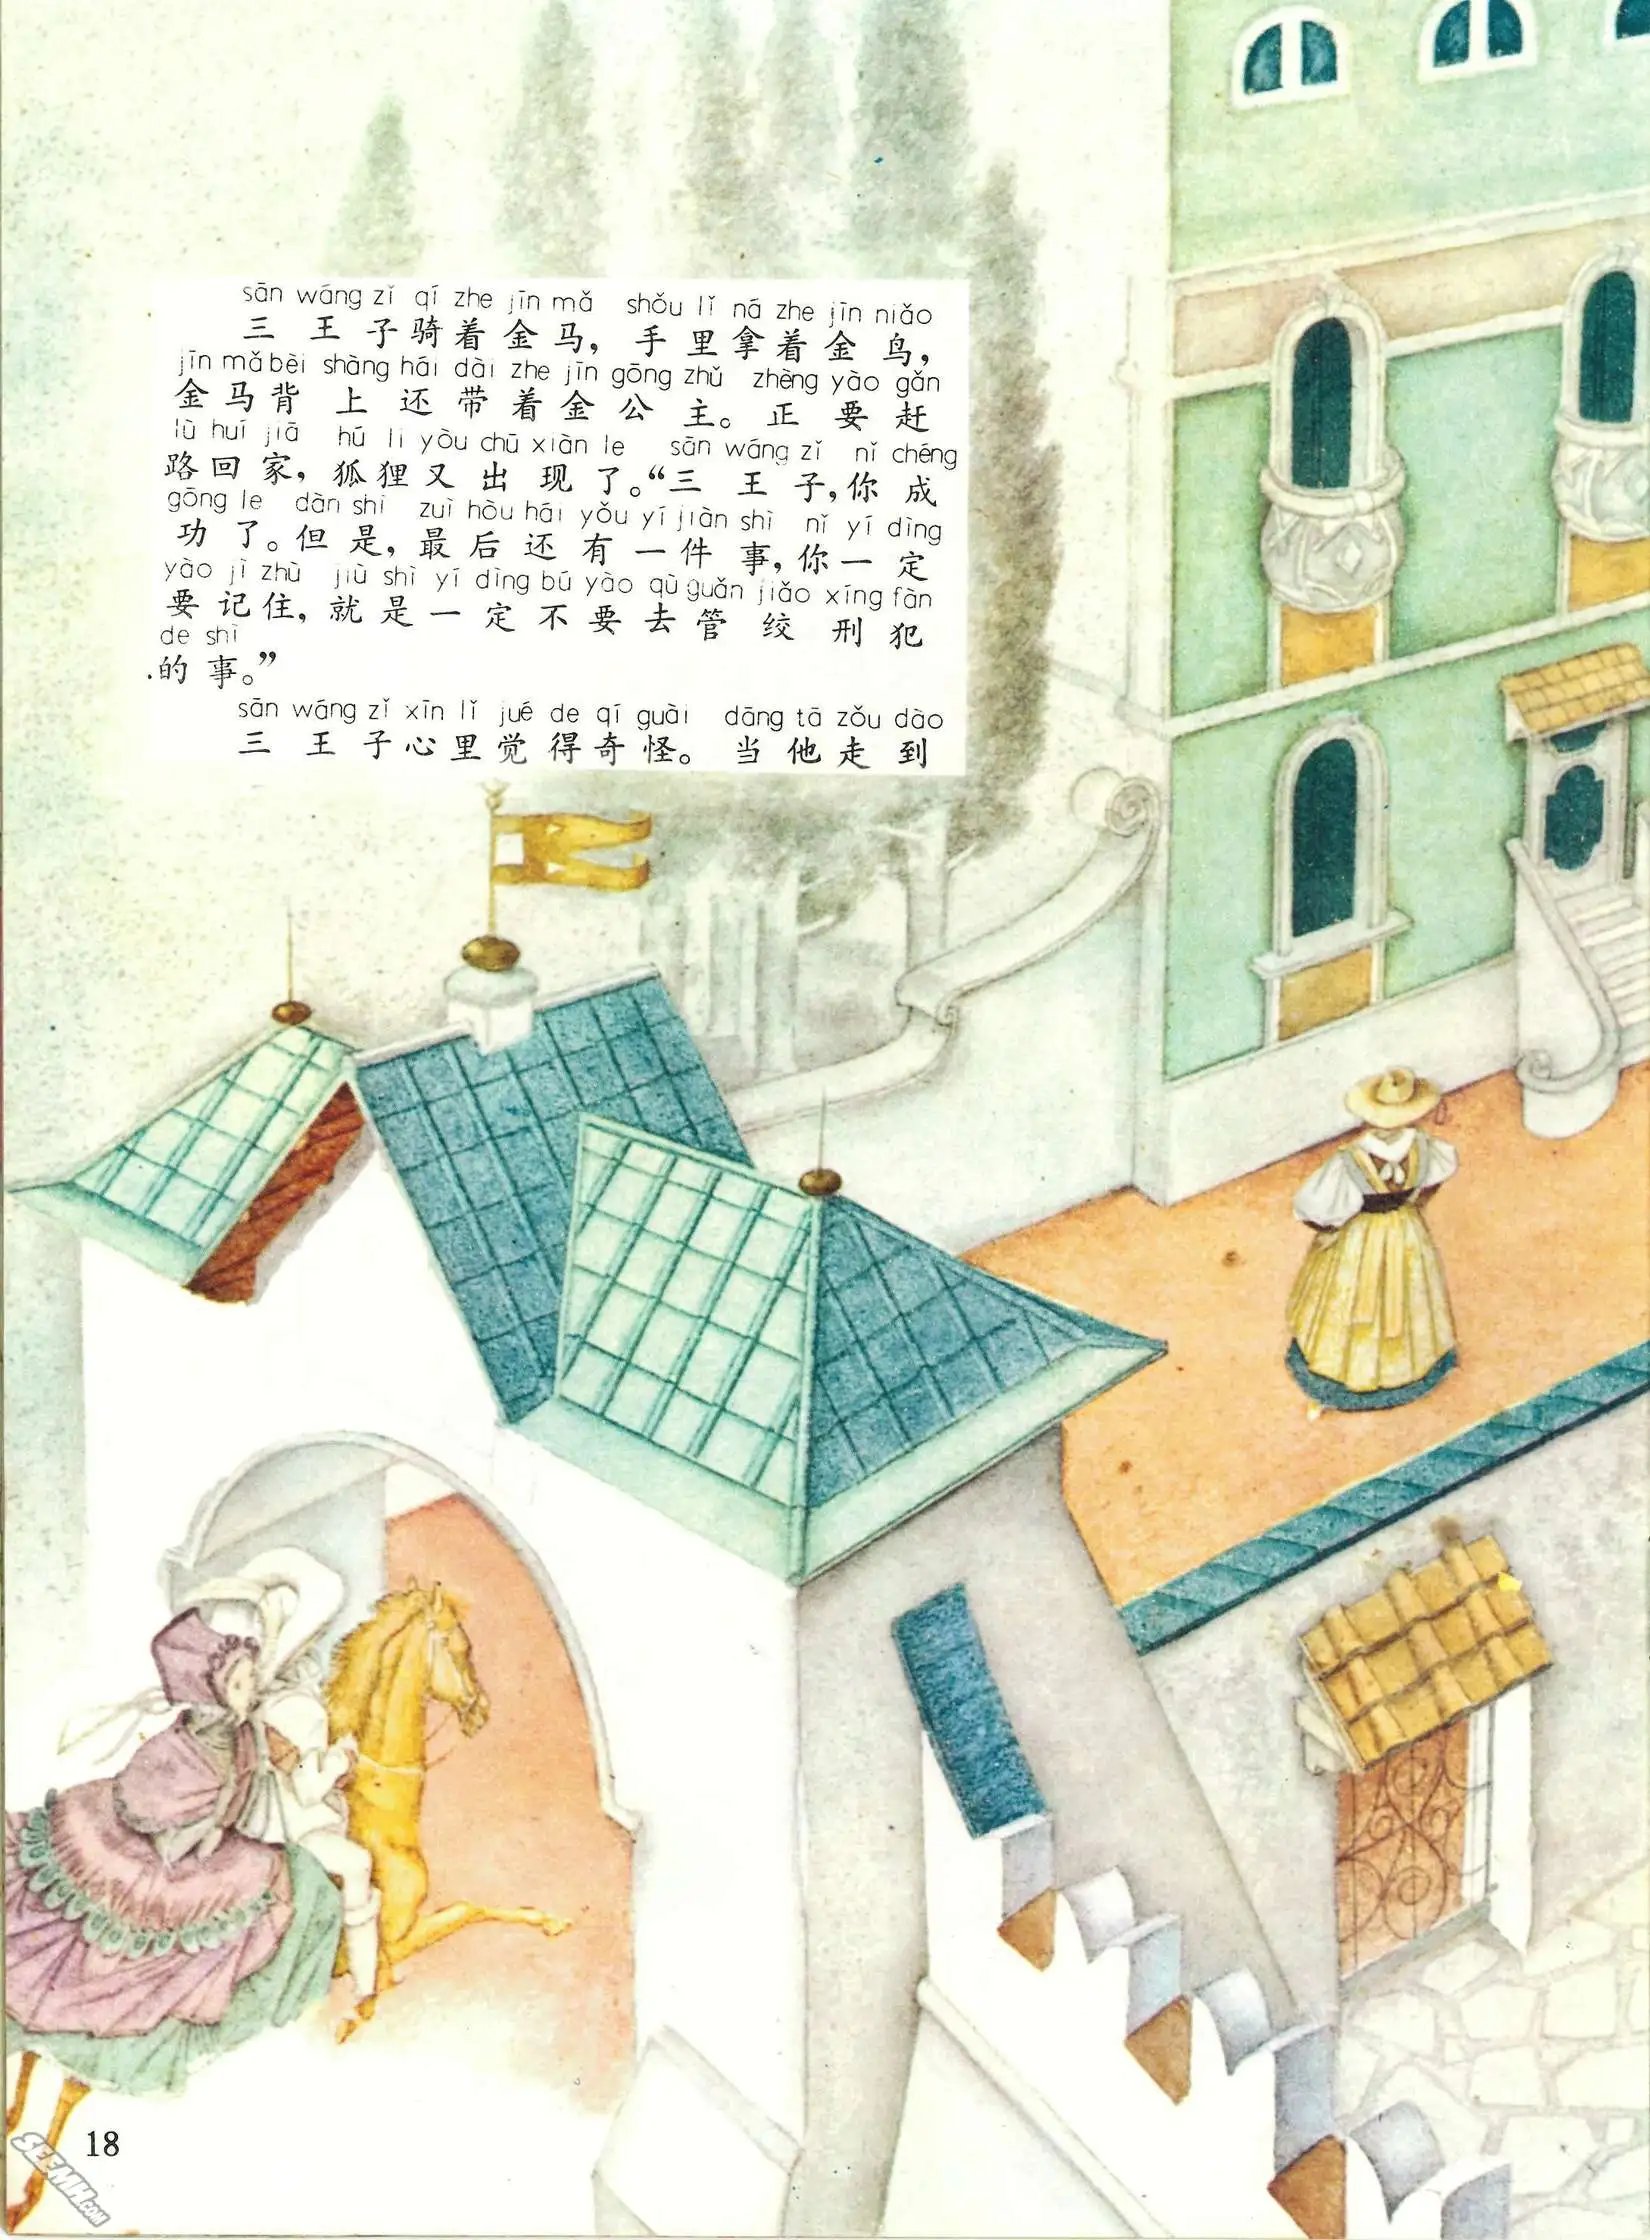 sān wáng zǐ qí zhe jīn mǎ shǒu lǐ ná zhe jīn niǎo
三王子骑着金马，手里拿着金鸟，
jīn mǎ bèi shàng hái dài zhe jīn gōng zhǔ zhèng yào gǎn
金马背上还带着金公主。正要赶
lù huí jiā hú li yòu chū xiàn le sān wáng zǐ nǐ chéng
路回家，狐狸又出现了。“三王子，你成
gōng le dàn shì zuì hòu hái yǒu yí jiàn shì nǐ yí dìng
功了。但是，最后还有一件事，你一定
yào jì zhù jiù shì yí dìng bú yào qù guǎn jiǎo xíng fàn
要记住，就是一定不要去管绞刑犯
de shì
的事。”
sān wáng zǐ xīn lǐ jué de qí guài dāng tā zǒu dào
三王子心里觉得奇怪。当他走到
18
SEEMH.COM